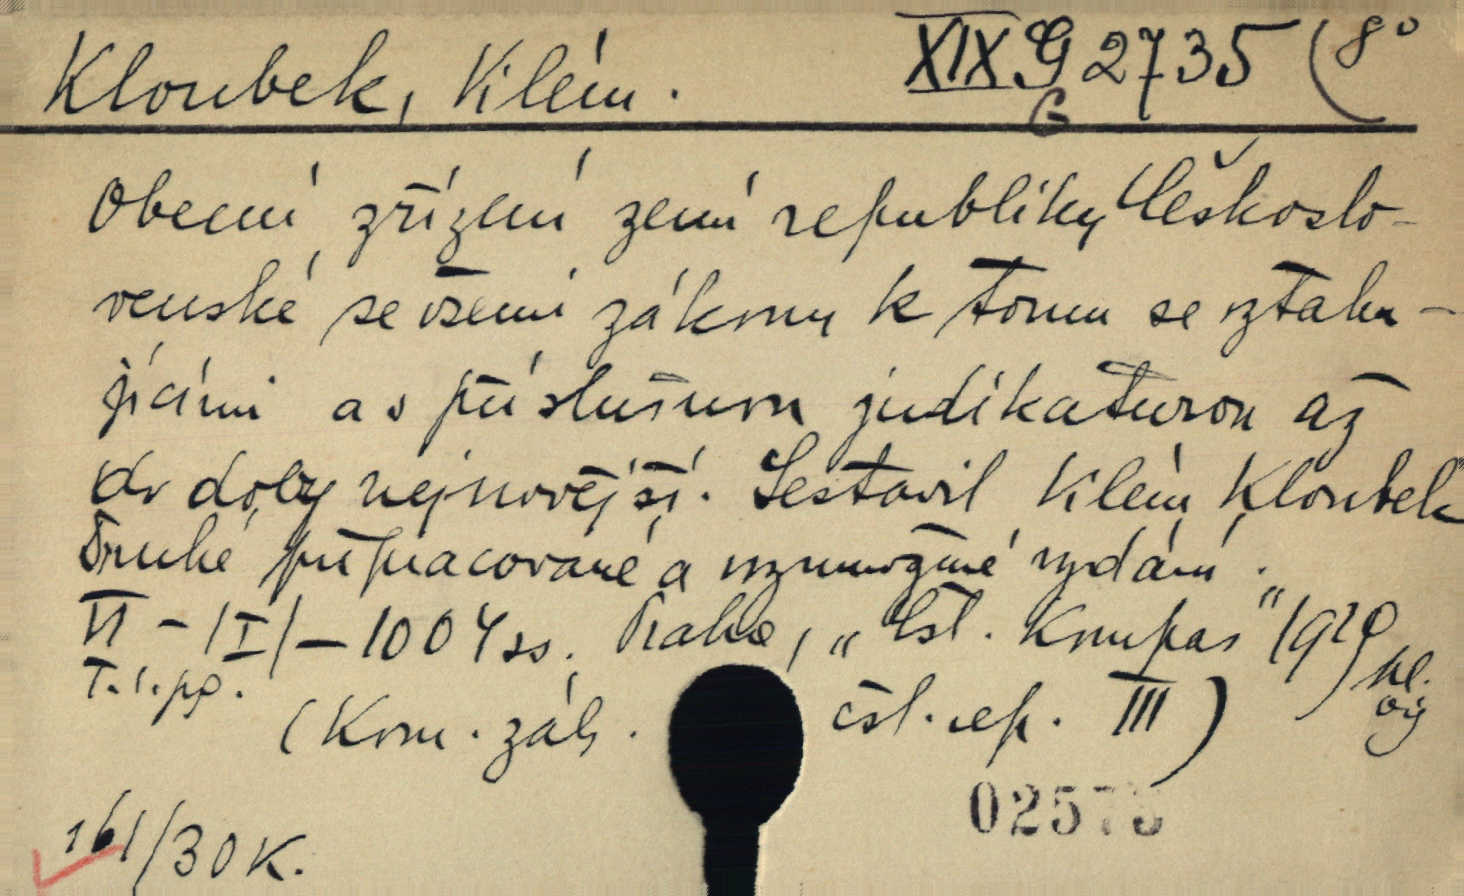 Kloubek, Vilém. XIX G 2735 (8°
G
Obecní zřízení zemí republiky Českoslo-
venské se všemi zákony k tomu se vztahu-
jícími a s příslušnou judikaturou až
do doby nejnovější. Sestavil Vilém Kloubek
Druhé přepracované a rozmnožené vydání.
VI - |I| - 1004 ss. Praha, „Čsl. Kompas“ 1929
T. i. pg. kl.
(Kom. zák. čsl. rep. III)
02575
161/30 K.